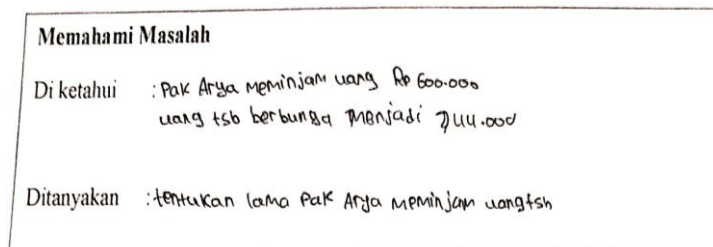 Memahami Masalah
Di ketahui : Pak Arya meminjam uang Rp 600.000
uang tsb berbunga menjadi 744.000
Ditanyakan : tentukan lama Pak Arya meminjam uang tsb